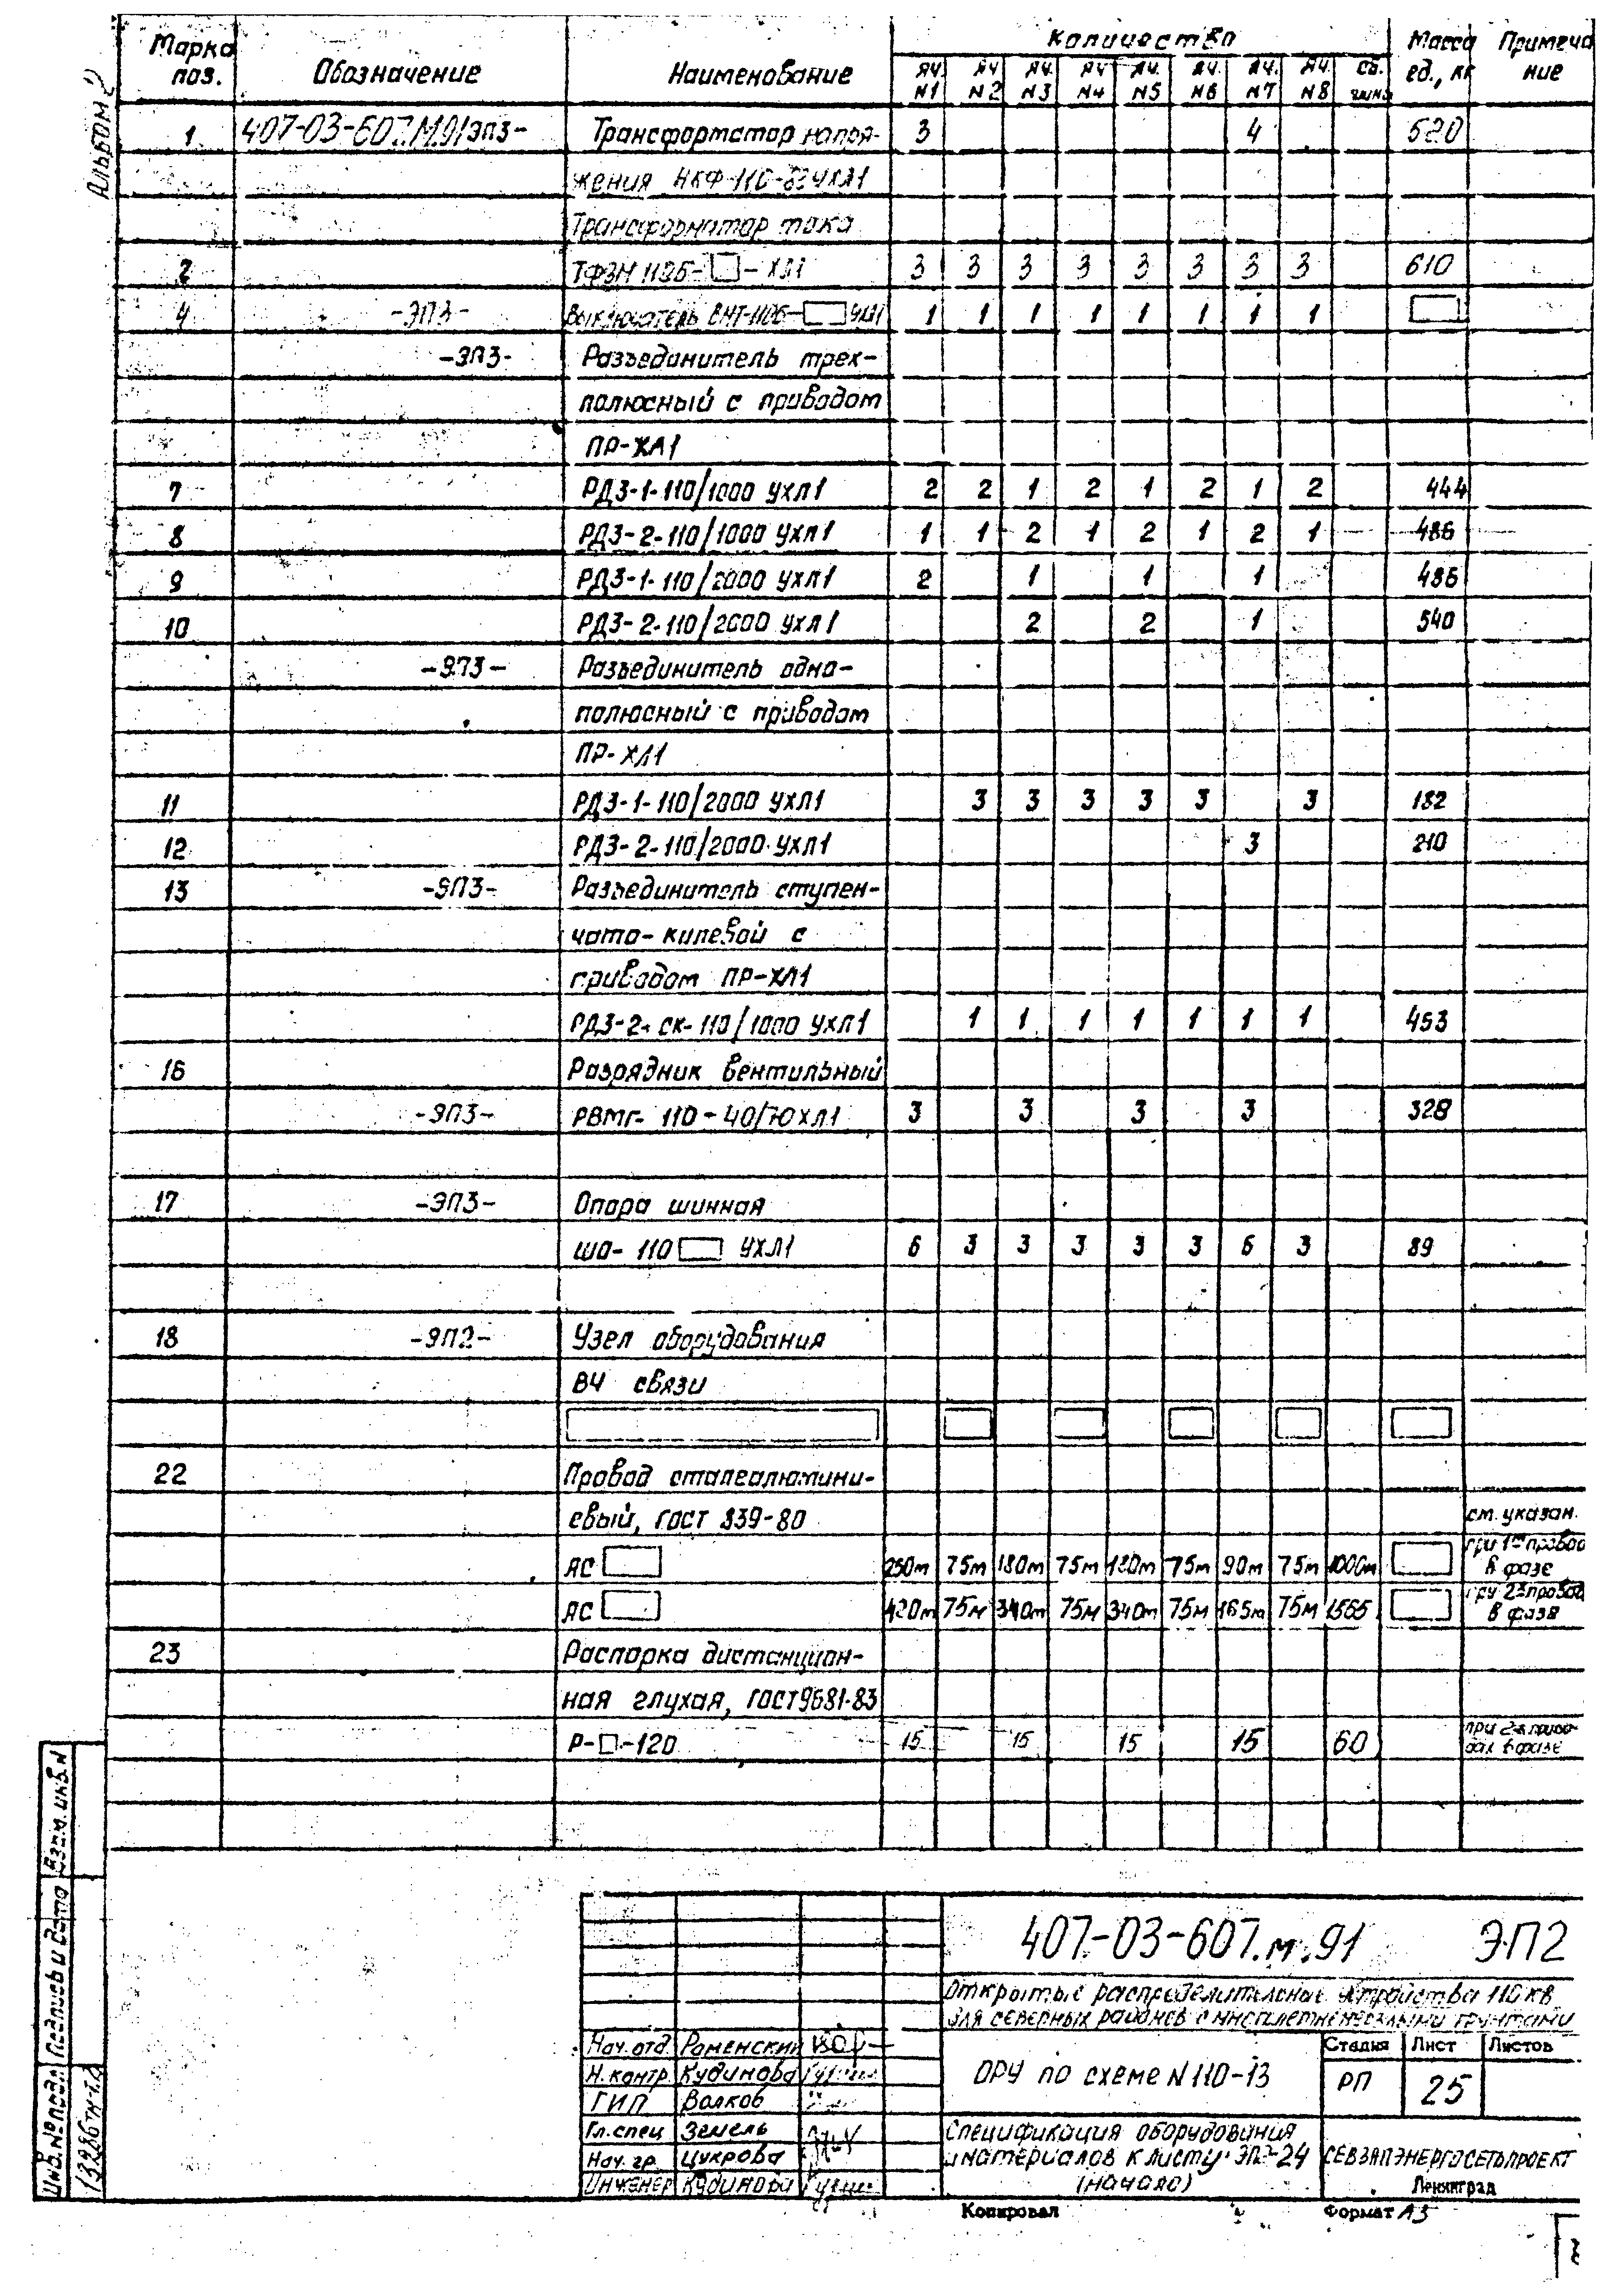 Альбом 2
Марка поз. Обозначение Наименование Количество Масса ед., кг Примечание
яч. N1 яч. N2 яч. N3 яч. N4 яч. N5 яч. N6 яч. N7 яч. N8
1 407-03-607.М.91 ЭП3- Трансформатор напря- 3 4 520
жения НКФ-110-83УХЛ1
Трансформатор тока
2 ТФЗМ 110Б-□-ХЛ1 3 3 3 3 3 3 3 3 610
4 -ЭП3- Выключатель ВМТ-110Б-□УХЛ1 1 1 1 1 1 1 1 1 □
-ЭП3- Разъединитель трех-
полюсный с приводом
ПР-ХЛ1
7 РДЗ-1-110/1000 УХЛ1 2 2 1 2 1 2 1 2 444
8 РДЗ-2-110/1000 УХЛ1 1 1 2 1 2 1 2 1 486
9 РДЗ-1-110/2000 УХЛ1 2 1 1 1 486
10 РДЗ-2-110/2000 УХЛ1 2 2 1 540
-ЭП3- Разъединитель одно-
полюсный с приводом
ПР-ХЛ1
11 РДЗ-1-110/2000 УХЛ1 3 3 3 3 3 3 182
12 РДЗ-2-110/2000 УХЛ1 3 210
13 -ЭП3- Разъединитель ступен-
чато-килевой с
приводом ПР-ХЛ1
РДЗ-2-СК-110/1000 УХЛ1 1 1 1 1 1 1 1 453
16 Разрядник вентильный
-ЭП3- РВМГ-110-40/70ХЛ1 3 3 3 3 328
17 -ЭП3- Опора шинная
ШО-110□ УХЛ1 6 3 3 3 3 3 6 3 89
18 -ЭП2- Узел оборудования
ВЧ связи
22 Провод сталеалюмини-
евый, ГОСТ 839-80 см. указан.
АС□ 250м 75м 180м 75м 180м 75м 90м 75м 1000м □ при 1м проводе в фазе
АС□ 420м 75м 340м 75м 340м 75м 165м 75м 1565 □ при 2х провод в фазе
23 Распорка дистанцион-
ная глухая, ГОСТ 9681-83
Р-□-120 15 15 15 15 60 при 2-х прово-дах в фазе
407-03-607.м.91 ЭП2
Открытые распределительные устройства 110 кВ
для северных районов с многолетнемерзлыми грунтами
Нач. отд. Раменский
Н. контр. Кудинова
ГИП Волков
Гл. спец Земель
Нач. гр. Цукрова
Инженер Кудинова
ОРУ по схеме N 110-13
Стадия Лист Листов
РП 25
Спецификация оборудования
и материалов к листу ЭП2-24
(начало)
СЕВЗАПЭНЕРГОСЕТЬПРОЕКТ
Ленинград
Копировал Формат А3
Инв. № подл. Подпись и дата Взам. инв. N
13286тм-т.2